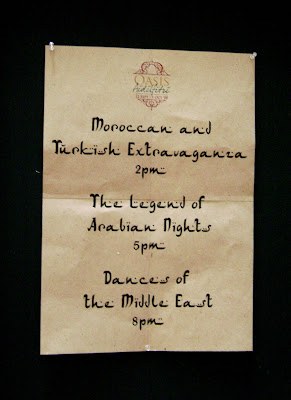 OASIS
Moroccan and
Turkish Extravaganza
2pm
The Legend of
Arabian Nights
5pm
Dances of
the Middle East
8pm